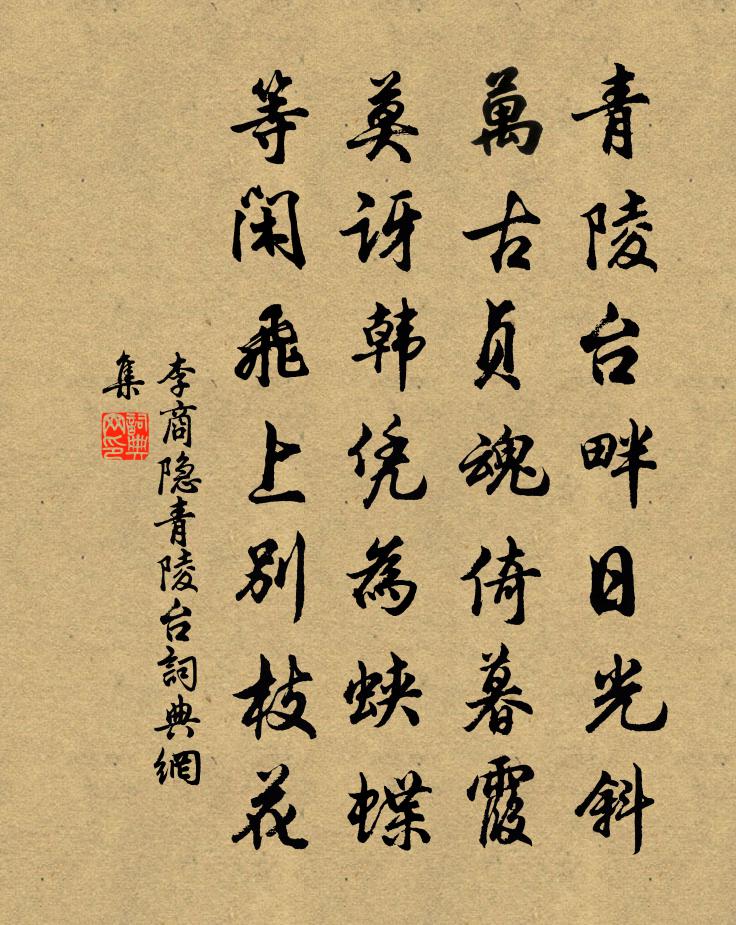 青陵台畔日光斜
萬古貞魂倚暮霞
莫訝韩凭為蛺蝶
等閑飛上別枝花
李商隐青陵台詞典網
集
詞典
网印